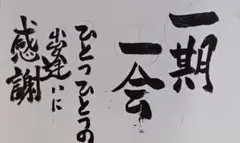 一期
一会
ひとつひとつの
出逢いに
感謝